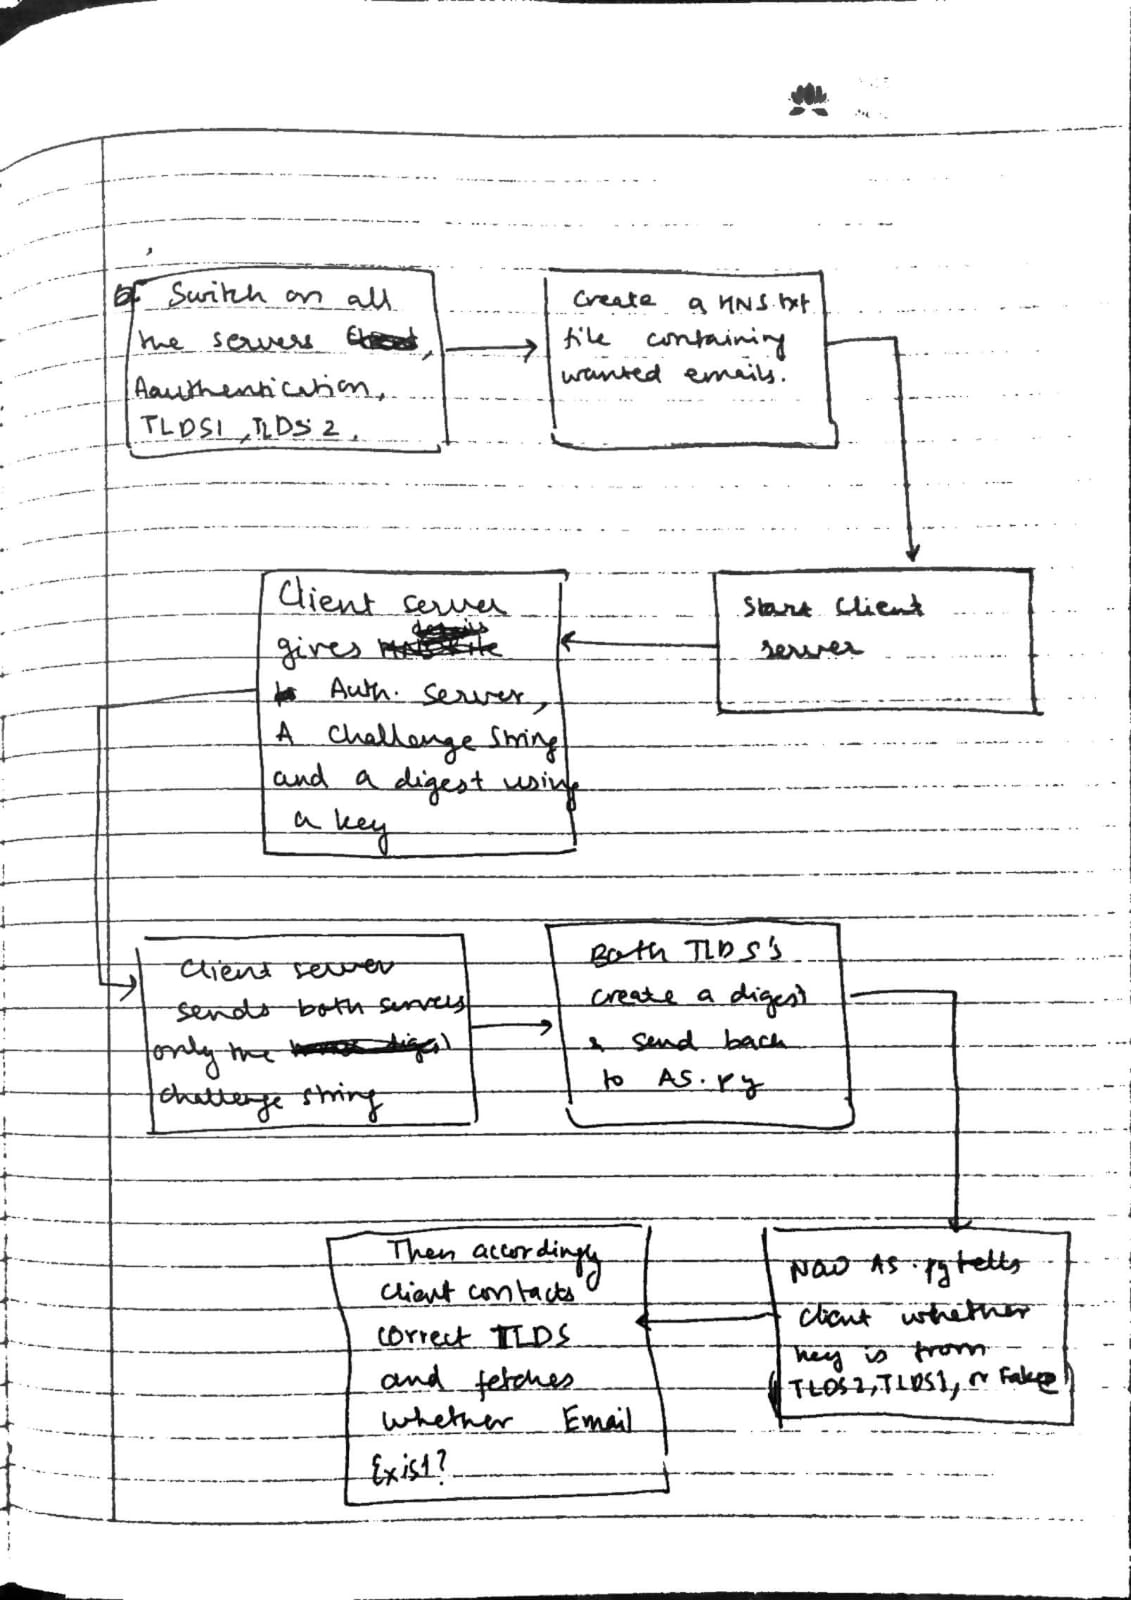 Switch on all
the servers ,
Aauthentication,
TLDS1, TLDS2,
Create a HNS.txt
file containing
wanted emails.
Start Client
server
Client server
gives
Auth. Server,
A Challenge String
and a digest using
a key
Client server
sends both servers
only the
challenge string
Both TLDS's
create a digest
& send back
to AS.py
Now AS.py tells
client whether
key is from
TLDS2, TLDS1, or Fake
Then accordingly
client contacts
correct TLDS
and fetches
whether Email
Exist?